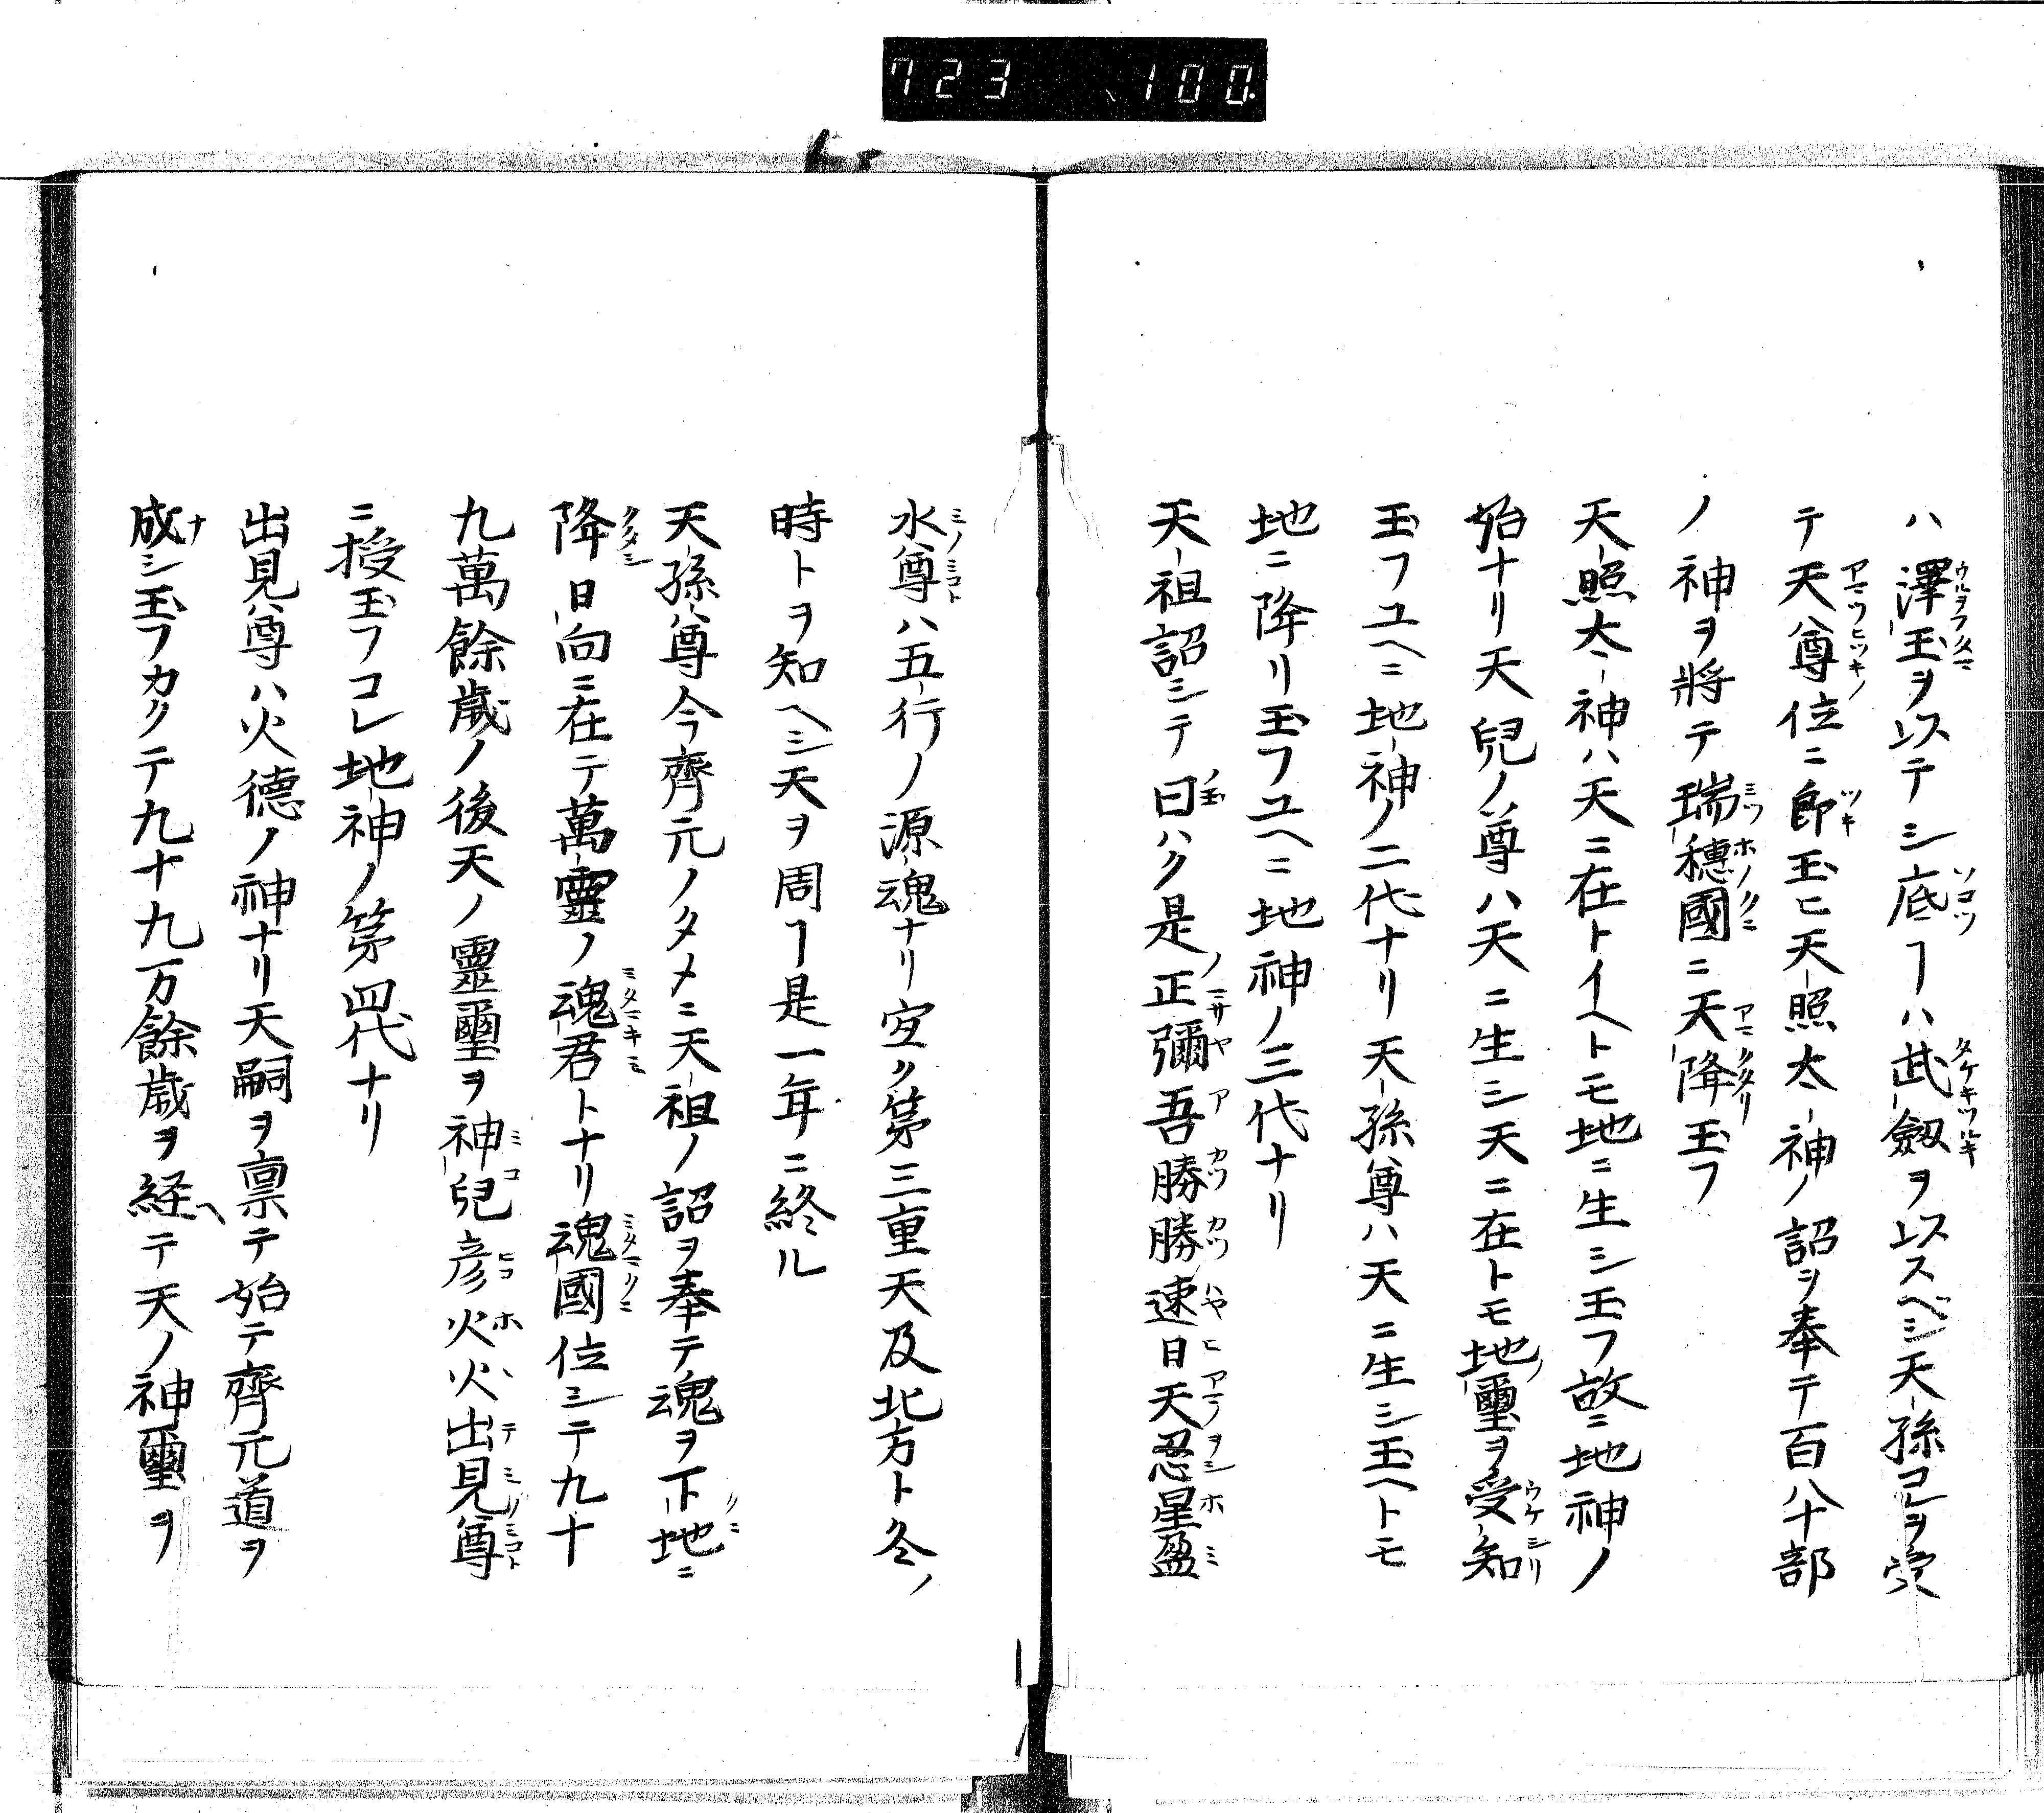 723 100.
ハ澤玉ヲ以テシ底ヿハ武劔ヲ以スベシ天孫コレヲ受
テ天尊位ニ即玉ヒ天照太神ノ詔ヲ奉テ百八十部
ノ神ヲ將テ瑞穗國ニ天降玉フ
天照太神ハ天ニ在トイヘトモ地ニ生シ玉フ故ニ地神ノ
始ナリ天兒ノ尊ハ天ニ生シ天ニ在トモ地璽ヲ受知
玉フユヘニ地神ノ二代ナリ天孫尊ハ天ニ生シ玉ヘトモ
地ニ降リ玉フユヘニ地神ノ三代ナリ
天祖詔シテ曰ハク是正彌吾勝勝速日天忍星盈
水尊ハ五行ノ源魂ナリ宜ク第三重天及北方ト冬ノ
時トヲ知ヘシ天ヲ周ヿ是一年ニ終ル
天孫尊今齊元ノタメニ天祖ノ詔ヲ奉テ魂ヲ下地ニ
降日向ニ在テ萬靈ノ魂君トナリ魂國位シテ九十
九萬餘歲ノ後天ノ靈璽ヲ神兒彦火火出見尊
ニ授玉フコレ地神ノ第四代ナリ
出見尊ハ火德ノ神ナリ天嗣ヲ禀テ始テ齊元道ヲ
成シ玉フカクテ九十九万餘歲ヲ経テ天ノ神璽ヲ